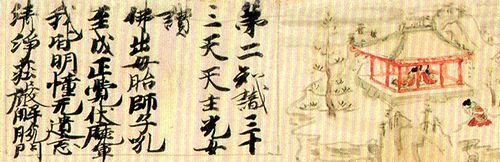 第二知識三十
三天天主光女
讃
佛出母胎師子吼
至成正覺伏魔軍
我時明憶无遺忘
清淨莊嚴解脱門